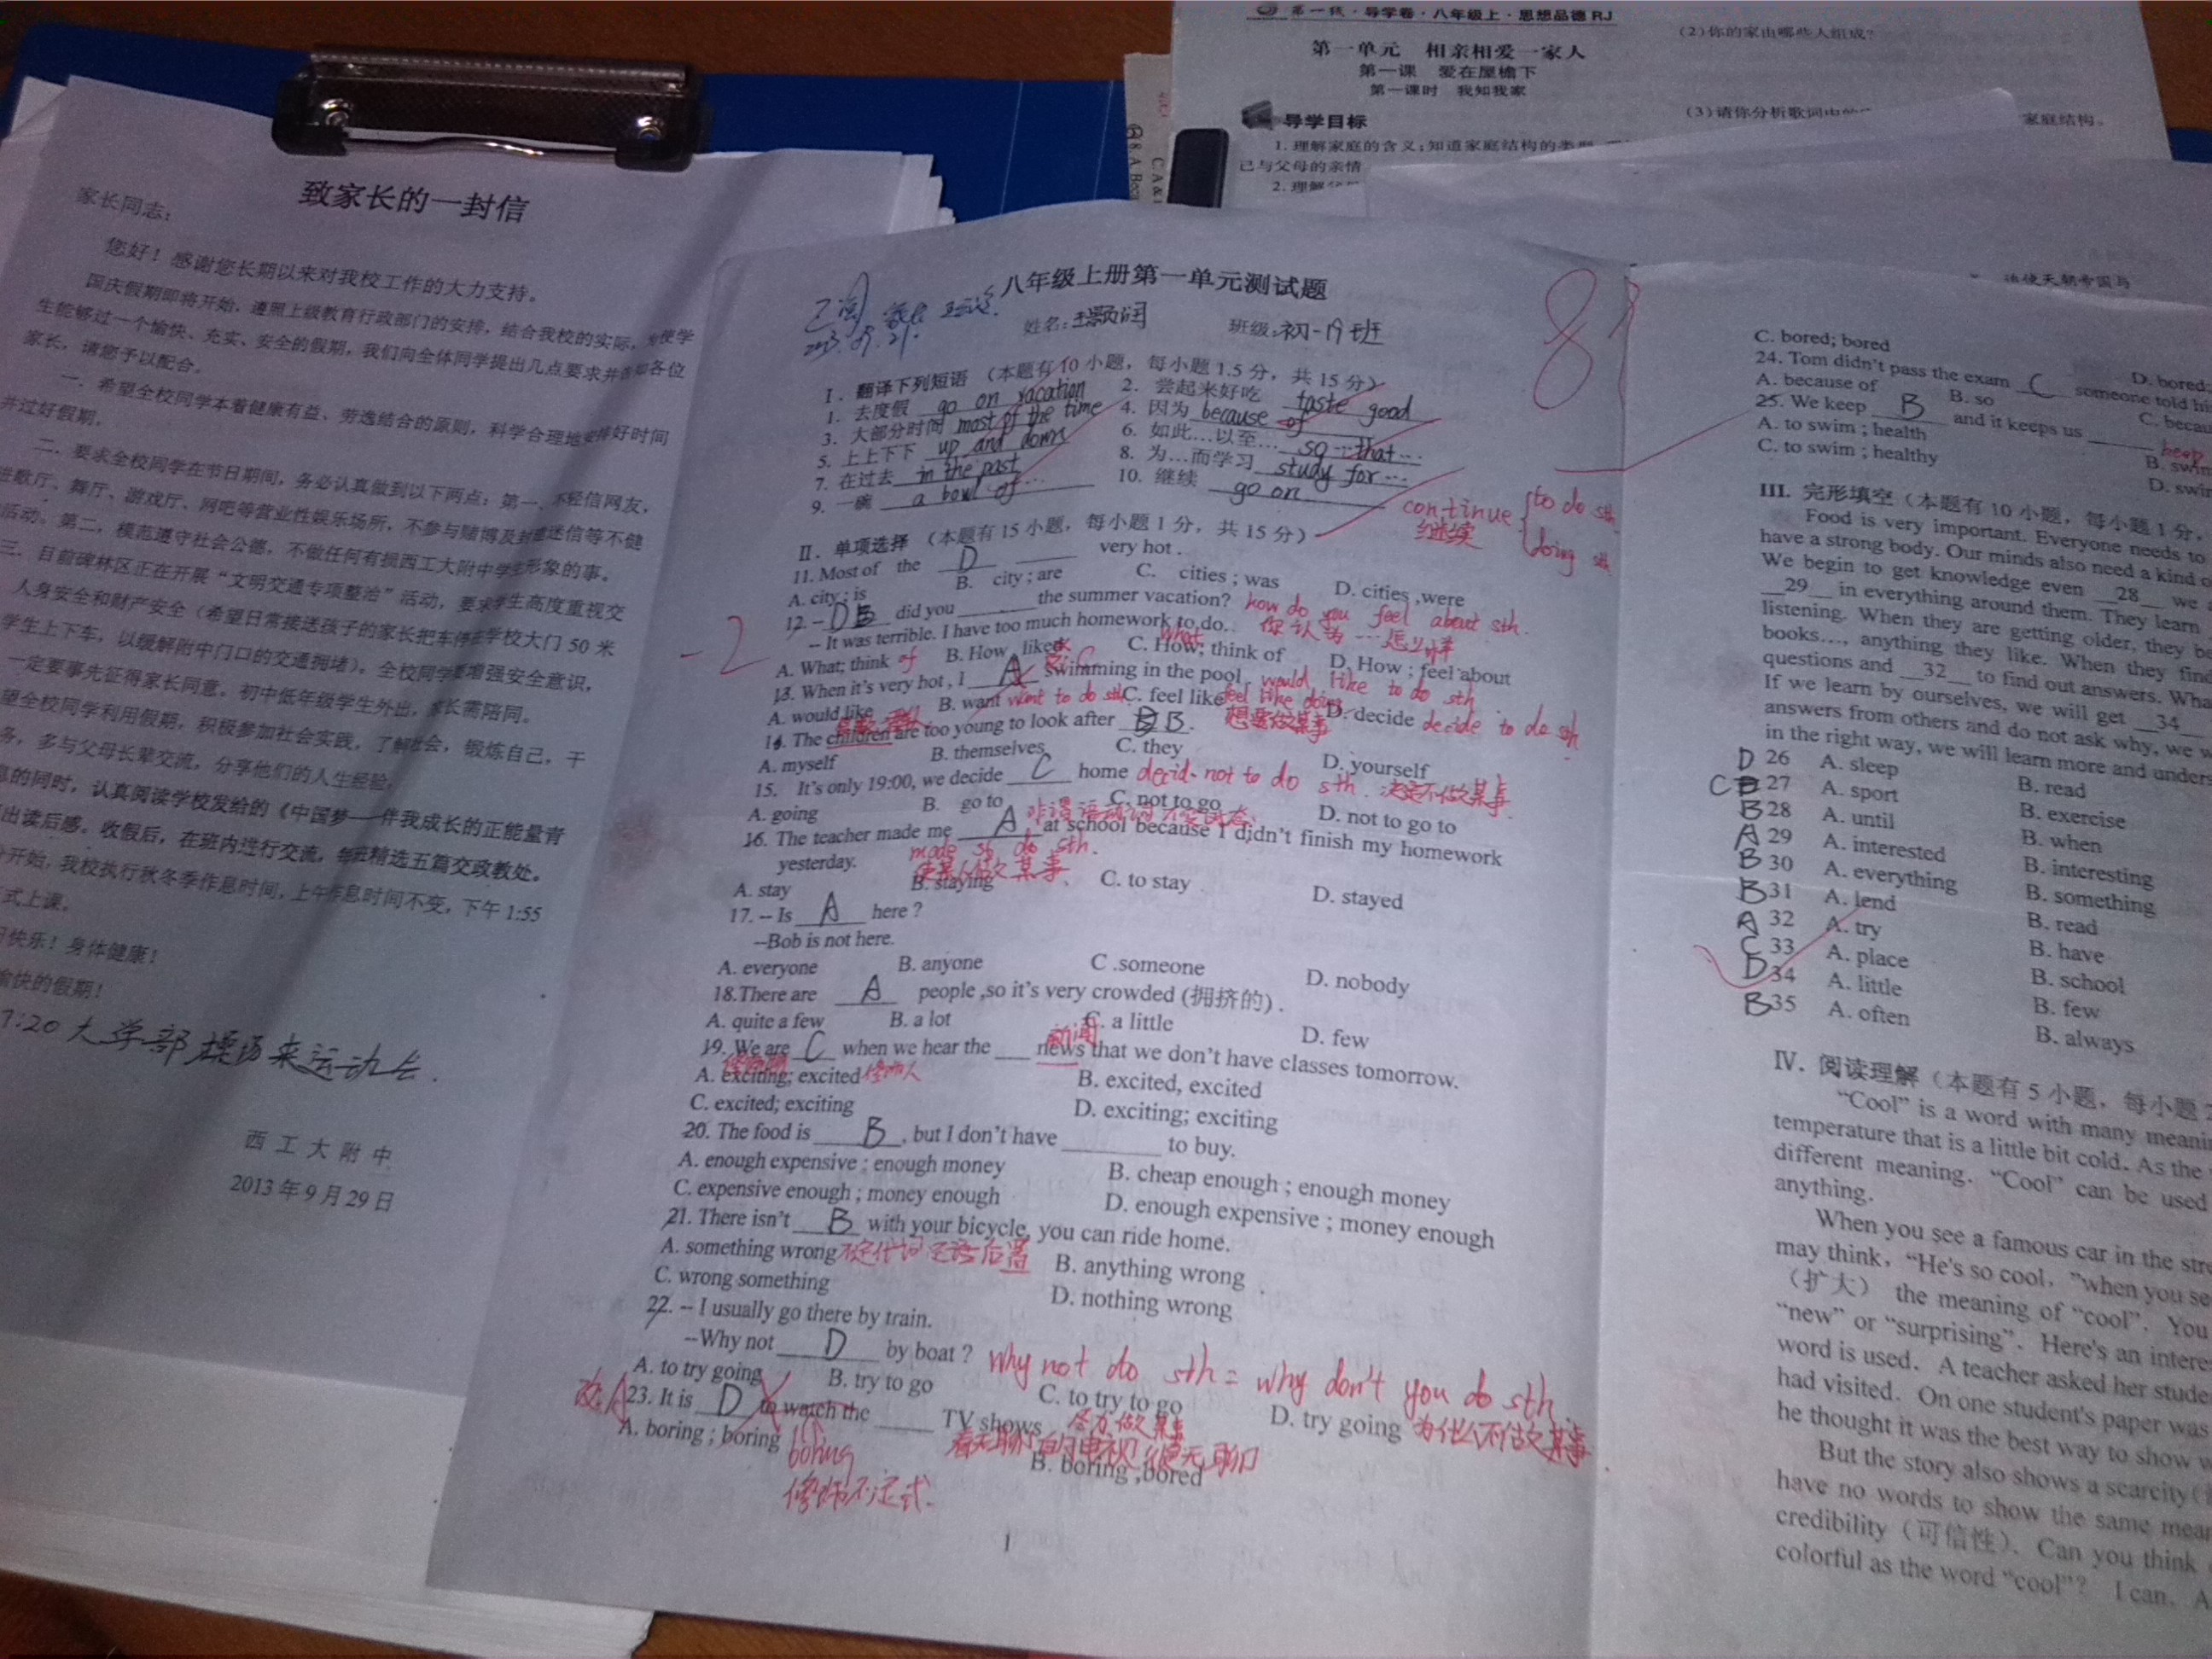 致家长的一封信
家长同志：
您好！感谢您长期以来对我校工作的大力支持。
国庆假期即将开始，遵照上级教育行政部门的安排，结合我校的实际，为使学
生能够过一个愉快、充实、安全的假期，我们向全体同学提出几点要求并告知各位
家长，请您予以配合。
一．希望全校同学本着健康有益、劳逸结合的原则，科学合理地安排好时间
并过好假期。
二．要求全校同学在节日期间，务必认真做到以下两点：第一、不轻信网友，
进歌厅、舞厅、游戏厅、网吧等营业性娱乐场所，不参与赌博及封建迷信等不健
活动。第二，模范遵守社会公德，不做任何有损西工大附中学生形象的事。
三．目前碑林区正在开展“文明交通专项整治”活动，要求学生高度重视交
人身安全和财产安全（希望日常接送孩子的家长把车停在学校大门 50 米
学生上下车，以缓解附中门口的交通拥堵）。全校同学要增强安全意识，
一定要事先征得家长同意。初中低年级学生外出，家长需陪同。
望全校同学利用假期，积极参加社会实践，了解社会，锻炼自己，干
务，多与父母长辈交流，分享他们的人生经验。
息的同时，认真阅读学校发给的《中国梦——伴我成长的正能量青
出读后感。收假后，在班内进行交流，每班精选五篇交政教处。
开始，我校执行秋冬季作息时间，上午作息时间不变，下午 1:55
式上课。
快乐！身体健康！
愉快的假期！
7:20 大学部操场来运动会.
西 工 大 附 中
2013 年 9 月 29 日
第一线·导学卷·八年级上·思想品德 RJ
第一单元 相亲相爱一家人
第一课 爱在屋檐下
第一课时 我知我家
导学目标
1. 理解家庭的含义；知道家庭结构的类型
己与父母的亲情
2. 理解
(2) 你的家由哪些人组成？
(3) 请你分析歌词中的
家庭结构。
迫使天朝帝国与
八年级上册第一单元测试题
已阅
姓名： 班级：初一19班
8
I．翻译下列短语 （本题有10 小题，每小题 1.5 分，共 15 分）
1. 去度假 go on vacation 2. 尝起来好吃 taste good
3. 大部分时间 most of the time 4. 因为 because of
5. 上上下下 up and down 6. 如此…以至… so …that…
7. 在过去 in the past 8. 为…而学习 study for …
9. 一碗 a bowl of … 10. 继续 go on
continue { to do sth
继续 doing sth
II．单项选择 （本题有 15 小题，每小题 1 分，共 15 分）
11. Most of the D ____ very hot .
A. city ; is B. city ; are C. cities ; was D. cities ,were
-2
12. -- D B did you ____ the summer vacation? how do you feel about sth.
-- It was terrible. I have too much homework to do. 你认为…怎么样
A. What; think of B. How , liked C. How; think of what D. How ; feel about
13. When it's very hot , I A swimming in the pool . would like to do sth
A. would like B. want want to do sth C. feel like feel like doing D. decide decide to do sth
想要做某事
14. The children are too young to look after B.
A. myself B. themselves C. they D. yourself
15. It's only 19:00, we decide C home decid- not to do sth. 决定不做某事
A. going B. go to C. not to go D. not to go to
16. The teacher made me A at school because I didn't finish my homework
yesterday. made sb do sth.
使某人做某事
A. stay B. staying C. to stay D. stayed
17. -- Is A here ?
--Bob is not here.
A. everyone B. anyone C .someone D. nobody
18.There are A people ,so it's very crowded (拥挤的) .
A. quite a few B. a lot C. a little D. few
新闻
19. We are C when we hear the ___ news that we don't have classes tomorrow.
A. exciting; excited 修饰人 B. excited, excited
C. excited; exciting D. exciting; exciting
20. The food is B , but I don't have ____ to buy.
A. enough expensive ; enough money B. cheap enough ; enough money
C. expensive enough ; money enough D. enough expensive ; money enough
21. There isn't B with your bicycle, you can ride home.
A. something wrong 不定代词定语后置 B. anything wrong
C. wrong something D. nothing wrong
22. -- I usually go there by train.
--Why not D by boat ? why not do sth = why don't you do sth
A. to try going B. try to go C. to try to go D. try going 为什么不做某事
尽力做某事
改:A 23. It is D to watch the ____ TV shows
看无聊的电视很无聊
A. boring ; boring B. boring ;bored
boring
修饰不定式.
1
C. bored; bored D. bored;
24. Tom didn't pass the exam C someone told hi
A. because of B. so C. becau
25. We keep B and it keeps us ____
A. to swim ; health B. swim
keep
C. to swim ; healthy D. swim
III. 完形填空（本题有 10 小题，每小题 1 分，
Food is very important. Everyone needs to
have a strong body. Our minds also need a kind o
We begin to get knowledge even 28 we
29 in everything around them. They learn
listening. When they are getting older, they be
books…, anything they like. When they find
questions and 32 to find out answers. Wha
If we learn by ourselves, we will get 34
answers from others and do not ask why, we w
in the right way, we will learn more and unders
D 26 A. sleep B. read
C 27 A. sport B. exercise
B 28 A. until B. when
A 29 A. interested B. interesting
B 30 A. everything B. something
B 31 A. lend B. read
A 32 A. try B. have
C 33 A. place B. school
D 34 A. little B. few
B 35 A. often B. always
IV. 阅读理解（本题有 5 小题，每小题
“Cool” is a word with many meani
temperature that is a little bit cold. As the
different meaning. “Cool” can be used
anything.
When you see a famous car in the stre
may think, “He's so cool, ”when you se
（扩大） the meaning of “cool”. You
“new” or “surprising”. Here's an intere
word is used. A teacher asked her stude
had visited. On one student's paper was
he thought it was the best way to show w
But the story also shows a scarcity
have no words to show the same mean
credibility（可信性）. Can you think
colorful as the word “cool”? I can. A